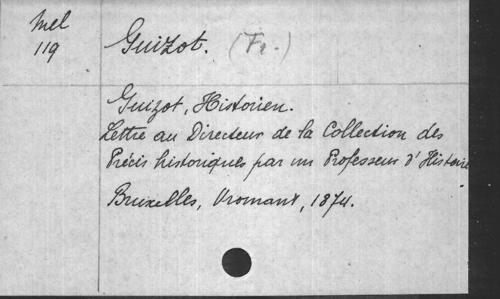 Mel
119
Guizot. (Fr.)
Guizot, Historien.
Lettre au Directeur de la Collection des
Précis historiques par un Professeur d'Histoire
Bruxelles, Vromant, 1874.